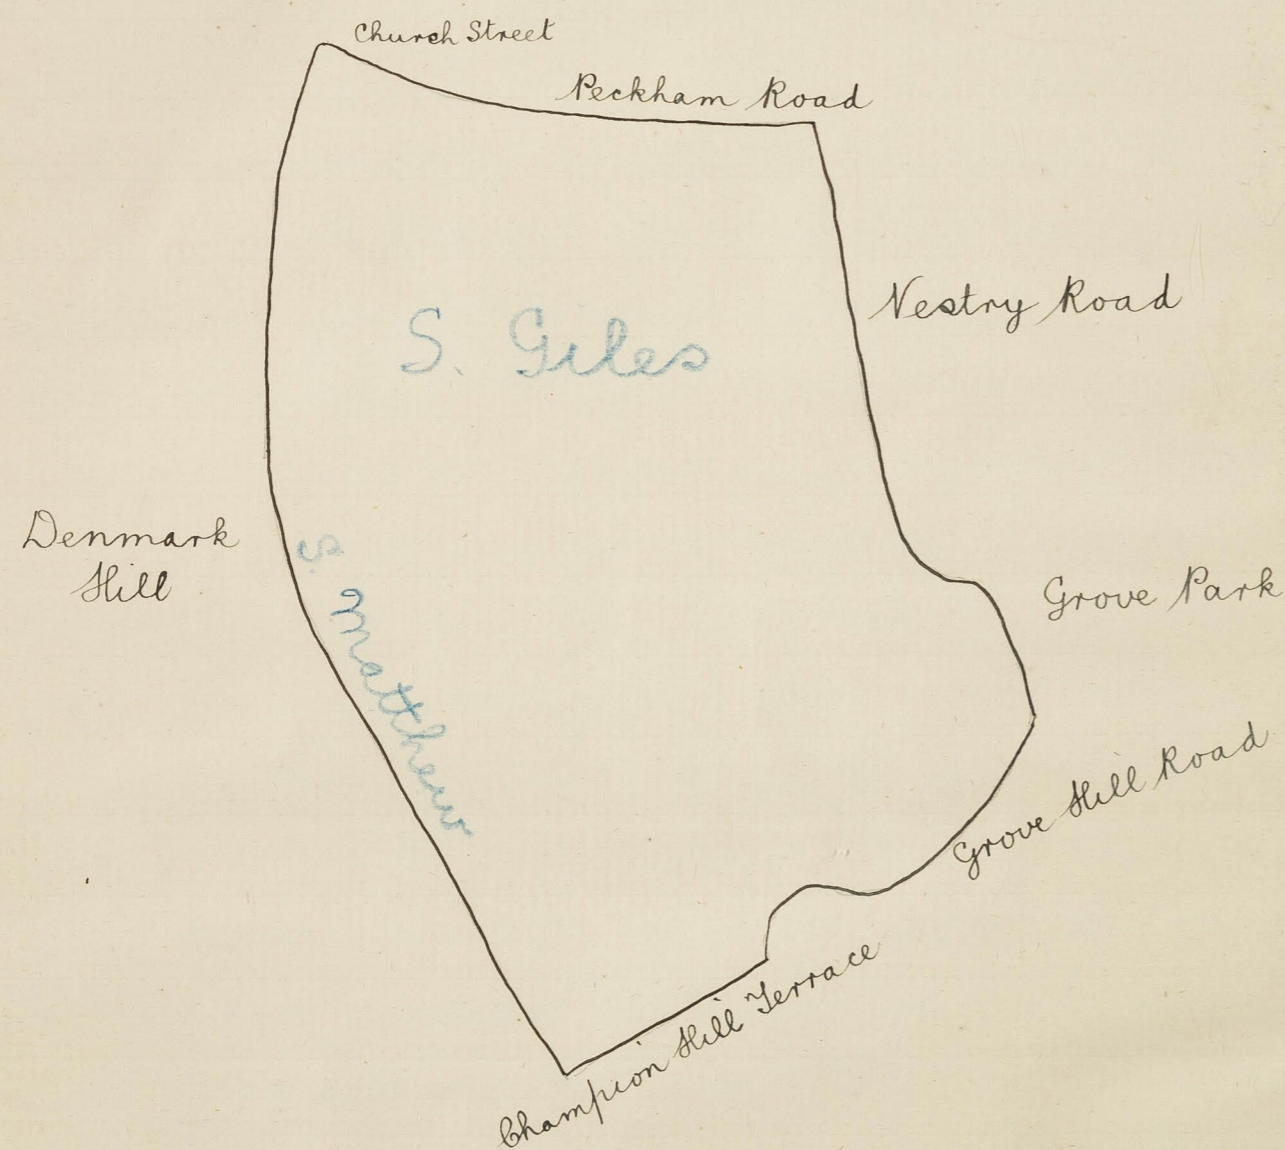 Church Street
Peckham Road
Vestry Road
S. Giles
Denmark
Hill
S. Matthew
Grove Park
Grove Hill Road
Champion Hill Terrace